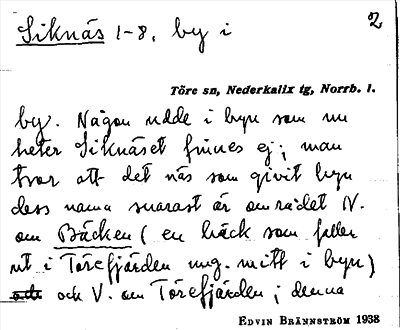 Siknäs 1-8, by i
2
Töre sn, Nederkalix tg, Norrb. l.
by. Någon udde i byn som nu
heter Siknäset finnes ej; man
tror att det näs som givit byn
dess namn snarast är området N.
om Bäcken (en bäck som faller
ut i Törefjärden ung. mitt i byn)
och V. om Törefjärden; denna
EDVIN BRÄNNSTRÖM 1938